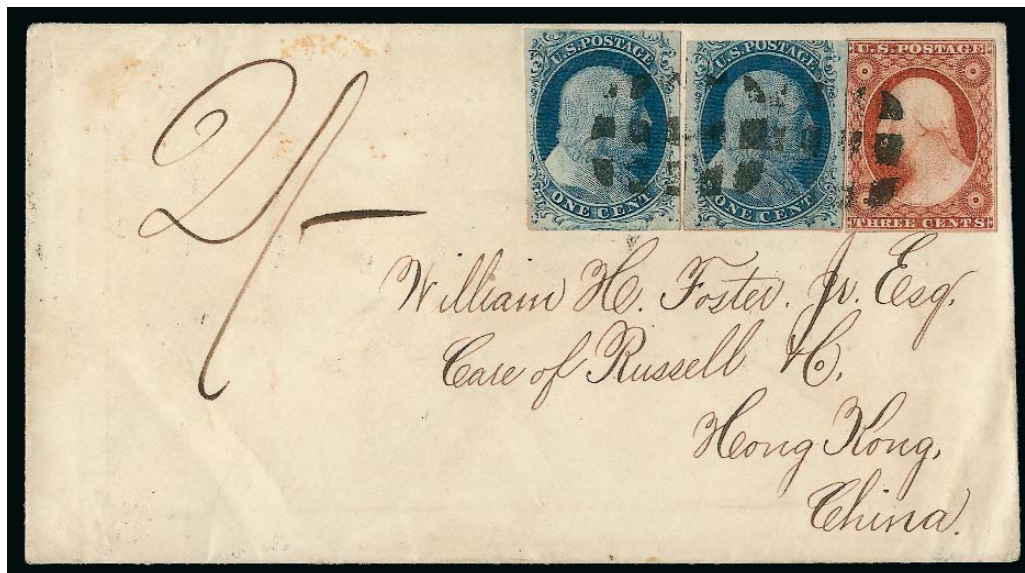 U.S. POSTAGE U.S. POSTAGE U.S. POSTAGE
ONE CENT ONE CENT THREE CENTS
2/-
William H. Foster. Jr. Esq.
Care of Russell & Co,
Hong Kong,
China.